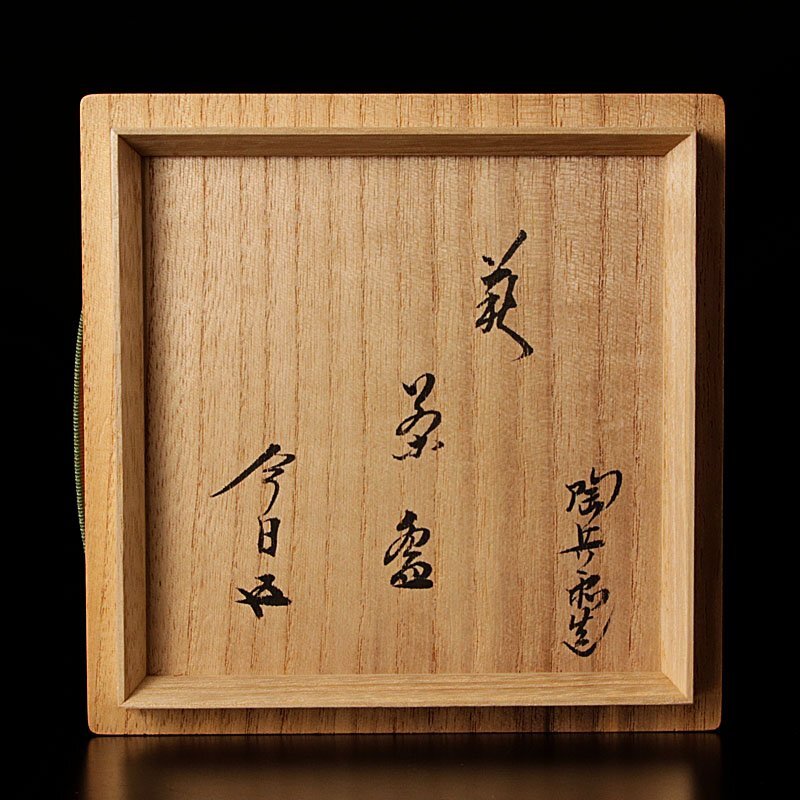 陶兵衛造
萩
茶盌
今日庵